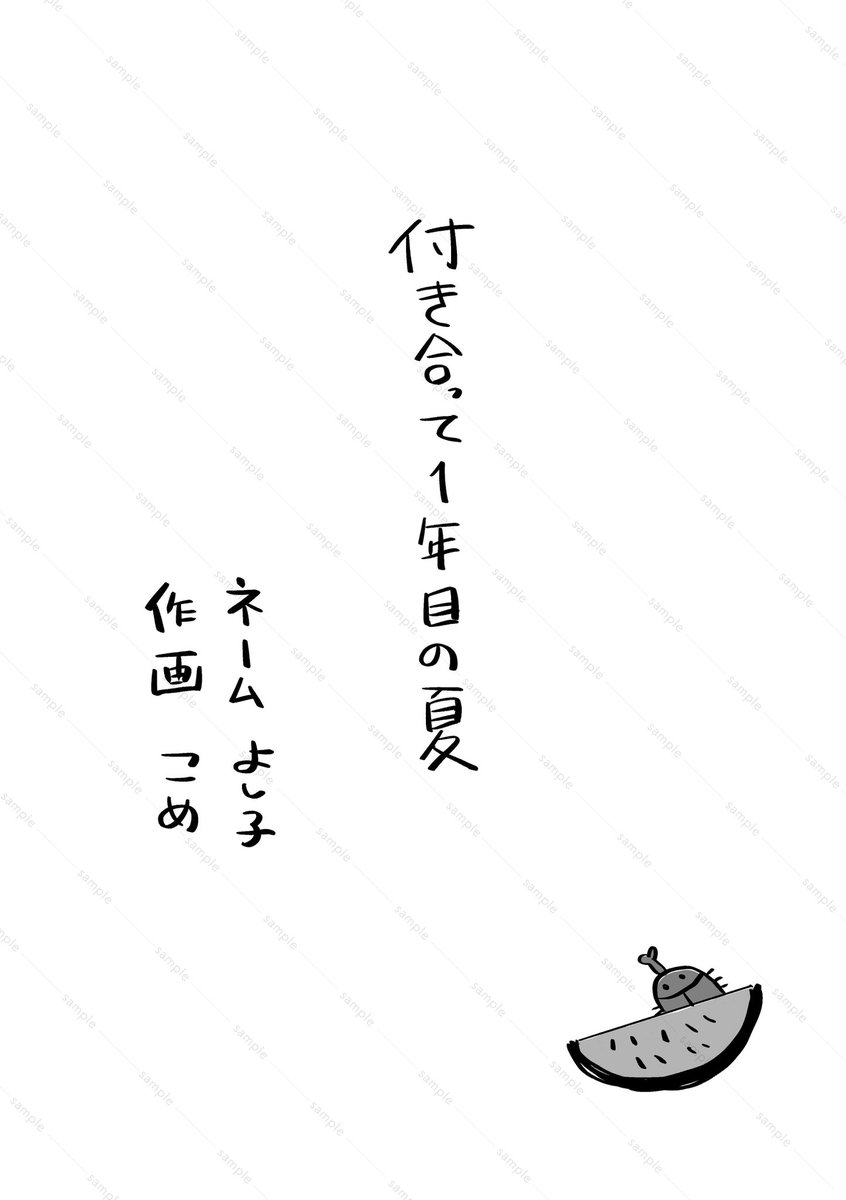 付き合って1年目の夏
ネーム よし子
作画 こめ
sample